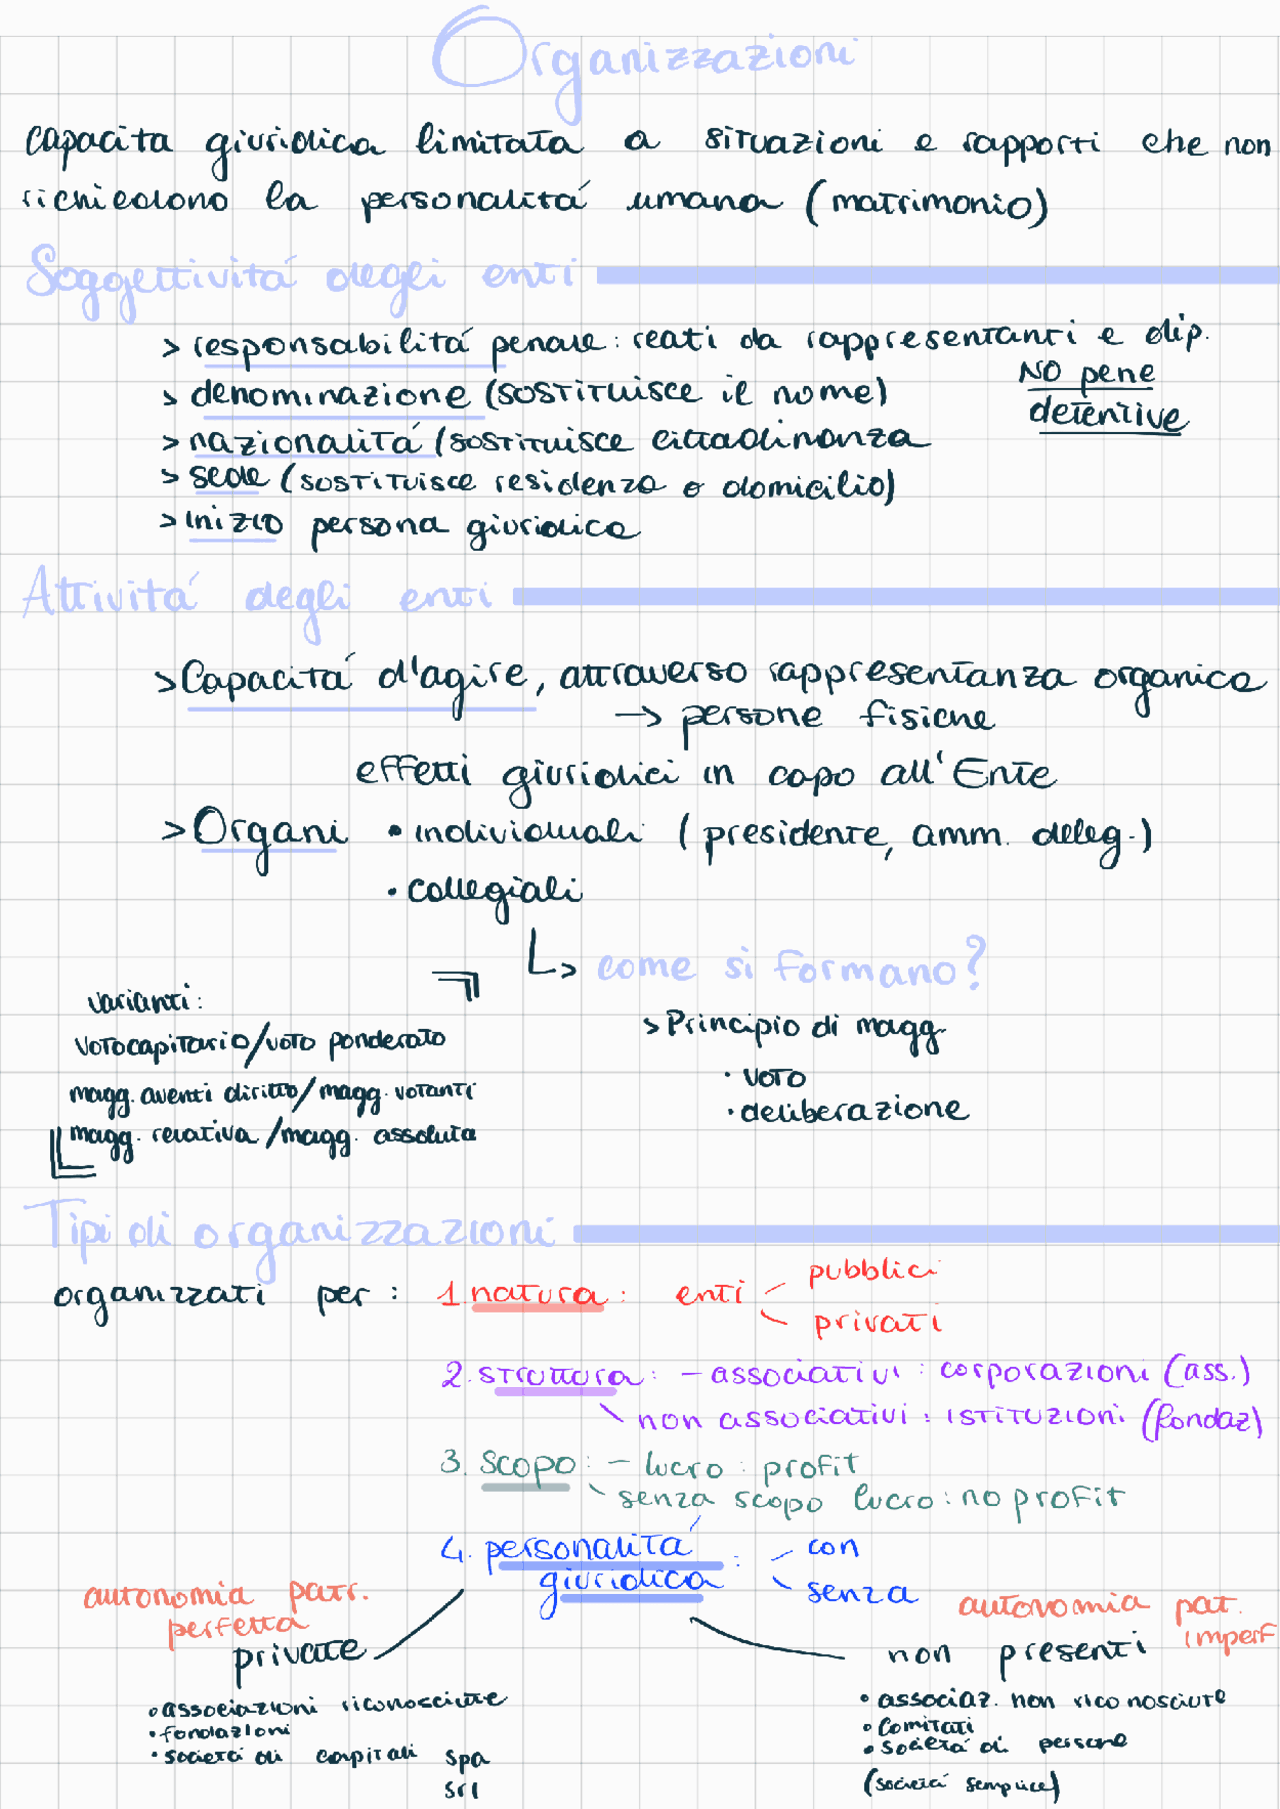 Organizzazioni
capacita giuridica limitata a situazioni e rapporti che non
richiedono la personalitá umana (matrimonio)
Soggettivitá degli enti
> responsabilitá penale: reati da rappresentanti e dip.
NO pene
detentive
> denominazione (sostituisce il nome)
> nazionalitá (sostituisce cittadinanza
> sede (sostituisce residenza o domicilio)
> inizio persona giuridica
Attivitá degli enti
> Capacitá d'agire, attraverso rappresentanza organica
→ persone fisiche
effetti giuridici in capo all'Ente
> Organi • individuali (presidente, amm. deleg.)
• collegiali
↳ come si formano?
> Principio di magg.
• voto
• deliberazione
varianti:
votocapitario/voto ponderato
magg. aventi diritto/magg. votanti
magg. relativa/magg. assoluta
Tipi di organizzazioni
organizzati per: 1. natura: enti pubblici
privati
2. struttura: - associativi: corporazioni (ass.)
\ non associativi: istituzioni (fondaz)
3. scopo: - lucro: profit
\ senza scopo lucro: no profit
4. personalitá giuridica: con
senza
autonomia patr.
perfetta
private
• associazioni riconosciute
• fondazioni
• societá di capitali spa
srl
autonomia pat.
imperf
non presenti
• associaz. non riconosciute
• Comitati
• societá di persone
(societá semplice)